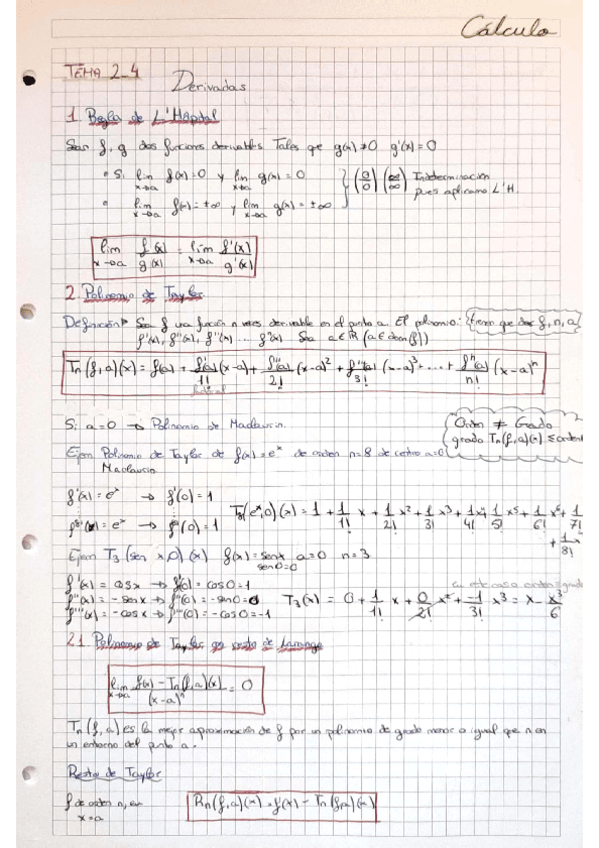 Cálculo
TEMA 2_4
Derivadas
1. Regla de L'Hôpital
Sean f, g dos funciones derivables Tales que g(x)≠0 g'(x)=0
• Si lim x→a f(x)=0 y lim x→a g(x)=0 } (0/0) (∞/∞) Indeterminación
• lim x→a f(x)=±∞ y lim x→a g(x)=±∞ pues aplicamos L'H.
lim x→a f(x)/g(x) = lim x→a f'(x)/g'(x)
2. Polinomio de Taylor
Definición Sea f una función n veces derivable en el punto a. El polinomio: tiene que dar f, n, a
f'(x), f''(x), f'''(x) ... fⁿ(x) Sea a∈ℝ (a∈dom(f))
Tn(f,a)(x) = f(a) + f'(a)/1! (x-a) + f''(a)/2! (x-a)² + f'''(a)/3! (x-a)³ + ... + fⁿ(a)/n! (x-a)ⁿ
Si a=0 → Polinomio de Maclaurin.
Orden ≠ Grado
grado Tn(f,a)(x) ≤ orden
Ejem Polinomio de Taylor de f(x)=eˣ de orden n=8 de centro a=0
Maclaurin
f'(x) = eˣ → f'(0) = 1
T8(eˣ,0)(x) = 1 + 1/1! x + 1/2! x² + 1/3! x³ + 1/4! x⁴ + 1/5! x⁵ + 1/6! x⁶ + 1/7!
(x) = eˣ → (0) = 1
+ 1/8! x⁸
Ejem T3(sen x,0)(x) f(x)=senx a=0 n=3
sen0=0
f'(x) = cosx → f'(0) = cos0 = 1
f''(x) = -senx → f''(0) = -sen0 = 0
T3(x) = 0 + 1/1! x + 0/2! x² + -1/3! x³ = x - x³/6
f'''(x) = -cosx → f'''(0) = -cos0 = -1
2.1. Polinomio de Taylor
lim x→a f(x) - Tn(f,a)(x) / (x-a)ⁿ = 0
Tn(f,a) es la mejor aproximación de f por un polinomio de grado menor o igual que n en
un entorno del punto a.
Resto de Taylor
f de orden n, en
x=a
Rn(f,a)(x) = f(x) - Tn(f,a)(x)